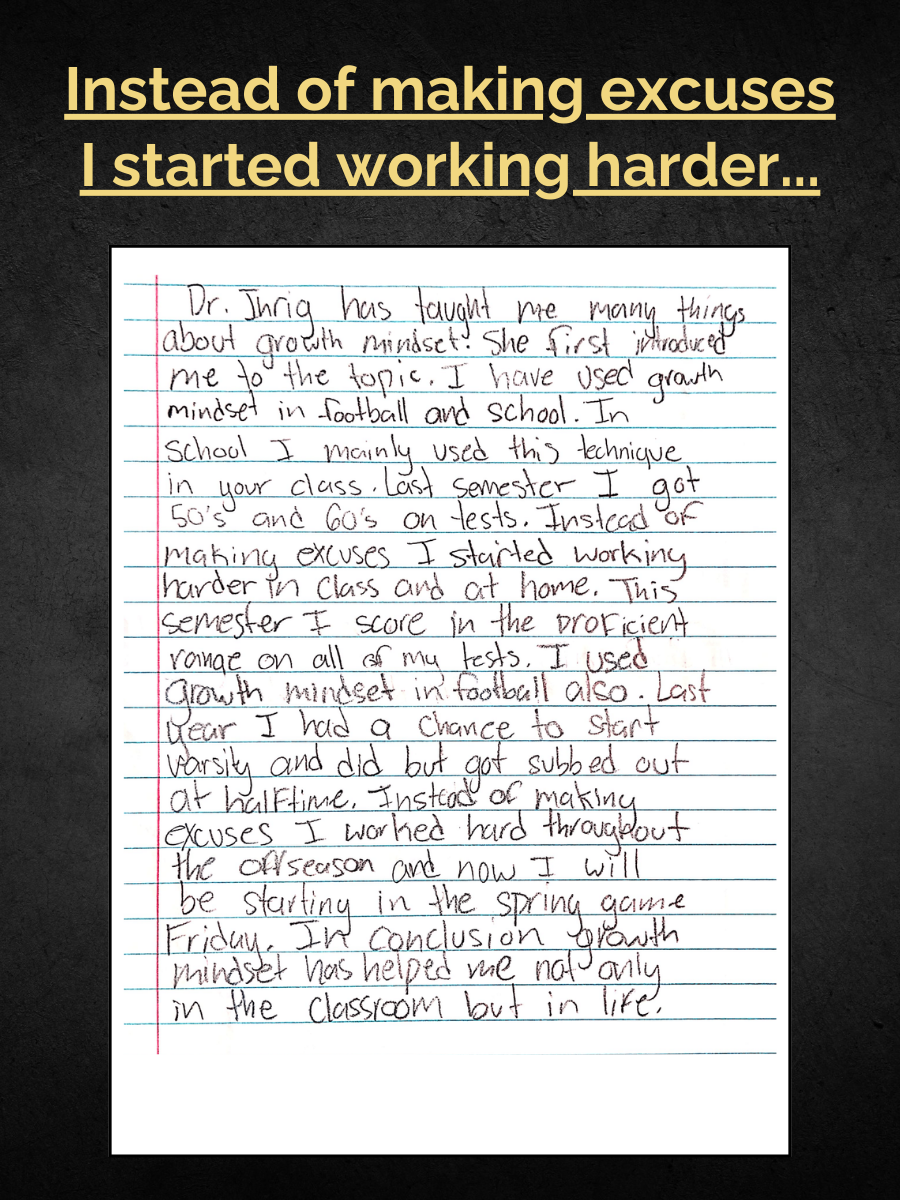 Instead of making excuses
I started working harder...
Dr. Jhrig has taught me many things
about growth mindset. She first introduced
me to the topic. I have used growth
mindset in football and school. In
school I mainly used this technique
in your class. Last semester I got
50's and 60's on tests. Instead of
making excuses I started working
harder in class and at home. This
semester I score in the proficient
range on all of my tests. I used
growth mindset in football also. Last
year I had a chance to start
varsity and did but got subbed out
at halftime. Instead of making
excuses I worked hard throughout
the offseason and now I will
be starting in the spring game
Friday. In conclusion growth
mindset has helped me not only
in the classroom but in life.